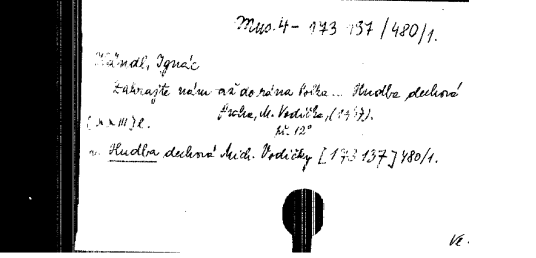 Mus. 4 - 173 137/480/1.
Händl, Ignác
Zahrajte nám až do rána Polka... Hudba dechová
Praha, M. Vodička, (1937).
[XXIII] l. kl. 12°
v. Hudba dechová Mich. Vodičky [173 137] 480/1.